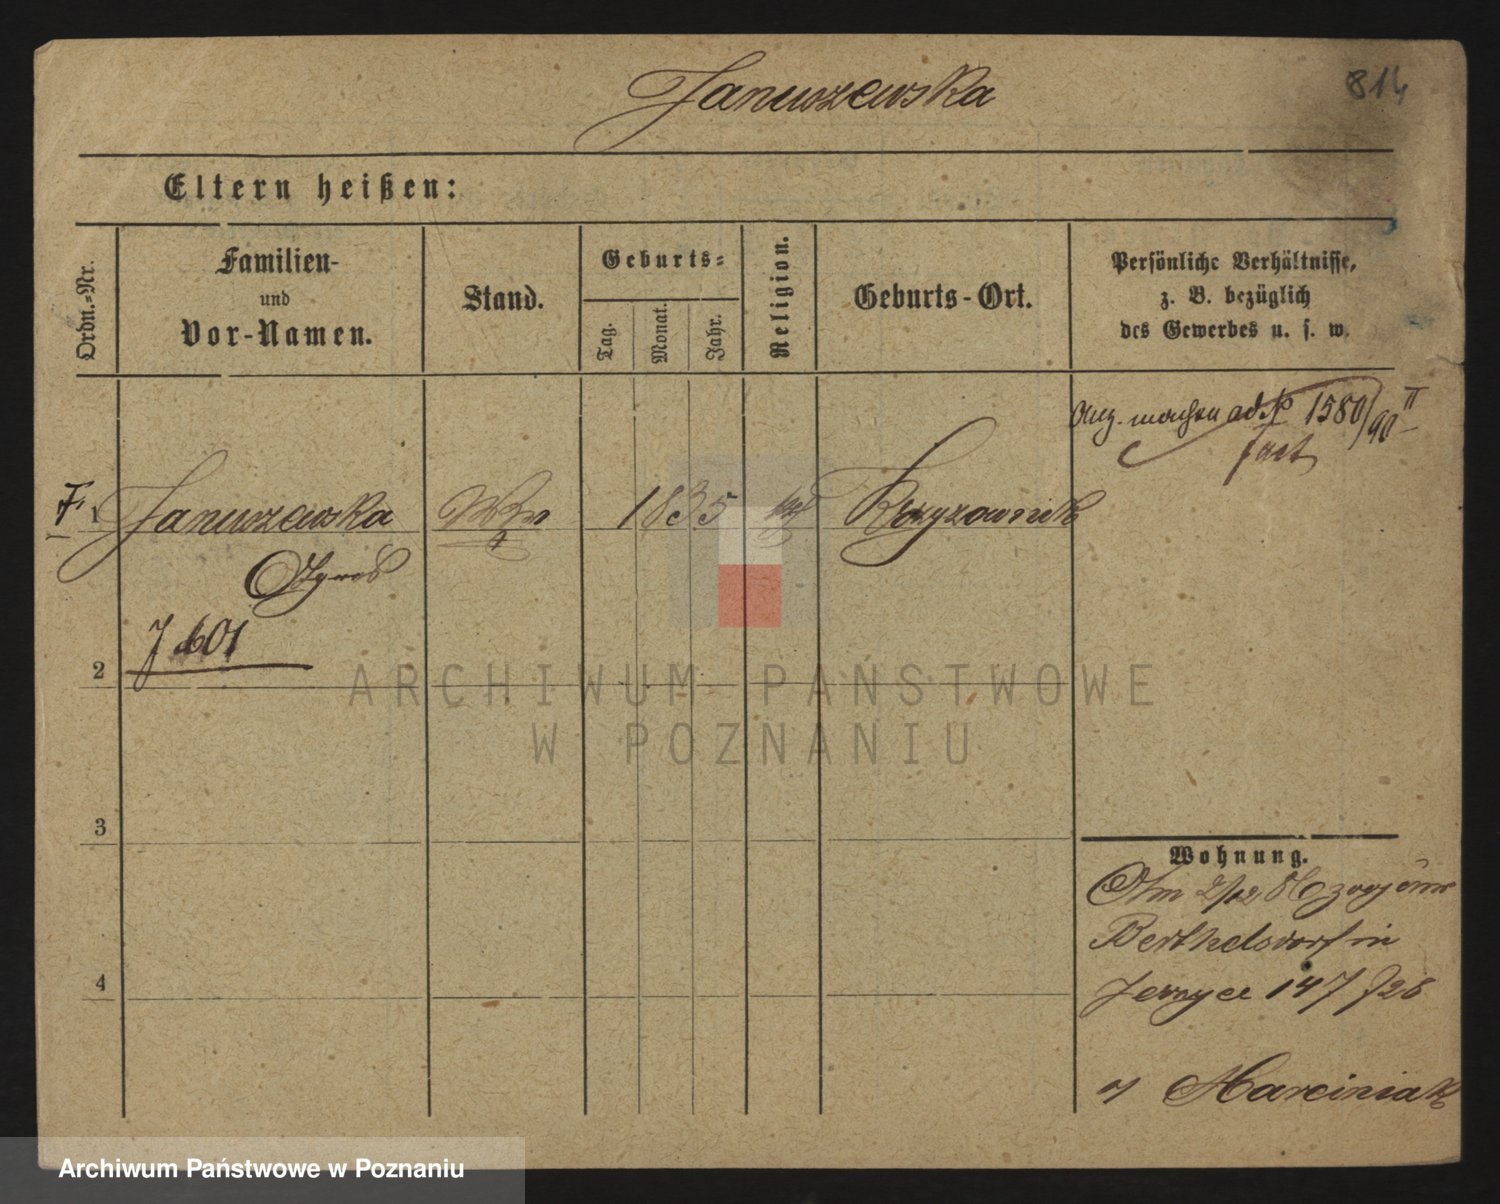 Januszewska
814
Eltern heißen:
Ordn.-Nr.
Familien-
und
Vor-Namen.
Stand.
Geburts-
Tag.
Monat.
Jahr.
Religion.
Geburts-Ort.
Persönliche Verhältnisse,
z. B. bezüglich
des Gewerbes u. s. w.
ad No 1580/90 II
F 1 Januszewska 1835
J 601
2
3
4
Wohnung.
Berthelsdorf in
Jerzyce 147 J26
Marciniak
ARCHIWUM PAŃSTWOWE
W POZNANIU
Archiwum Państwowe w Poznaniu